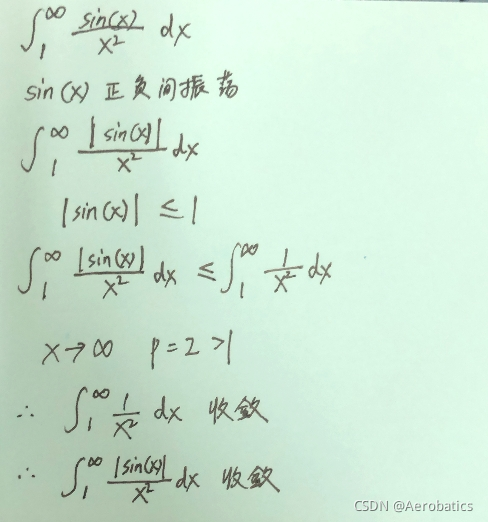 ∫₁^∞ sin(x)/x² dx
sin(x) 正负间振荡
∫₁^∞ |sin(x)|/x² dx
|sin(x)| ≤ 1
∫₁^∞ |sin(x)|/x² dx ≤ ∫₁^∞ 1/x² dx
x→∞ p=2>1
∴ ∫₁^∞ 1/x² dx 收敛
∴ ∫₁^∞ |sin(x)|/x² dx 收敛
CSDN @Aerobatics